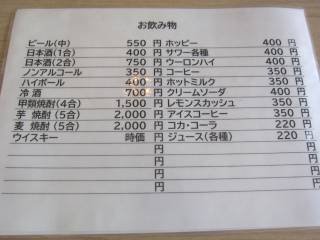 お飲み物
ビール(中) 550 円 ホッピー 400 円
日本酒(1合) 400 円 サワー各種 400 円
日本酒(2合) 750 円 ウーロンハイ 400 円
ノンアルコール 350 円 コーヒー 350 円
ハイボール 400 円 ホットミルク 350 円
冷酒 700 円 クリームソーダ 400 円
甲類焼酎(4合) 1,500 円 レモンスカッシュ 350 円
芋 焼酎(5合) 2,000 円 アイスコーヒー 350 円
麦 焼酎(5合) 2,000 円 コカ・コーラ 220 円
ウイスキー 時価 円 ジュース(各種) 220 円
円 円
円 円
円 円
円 円